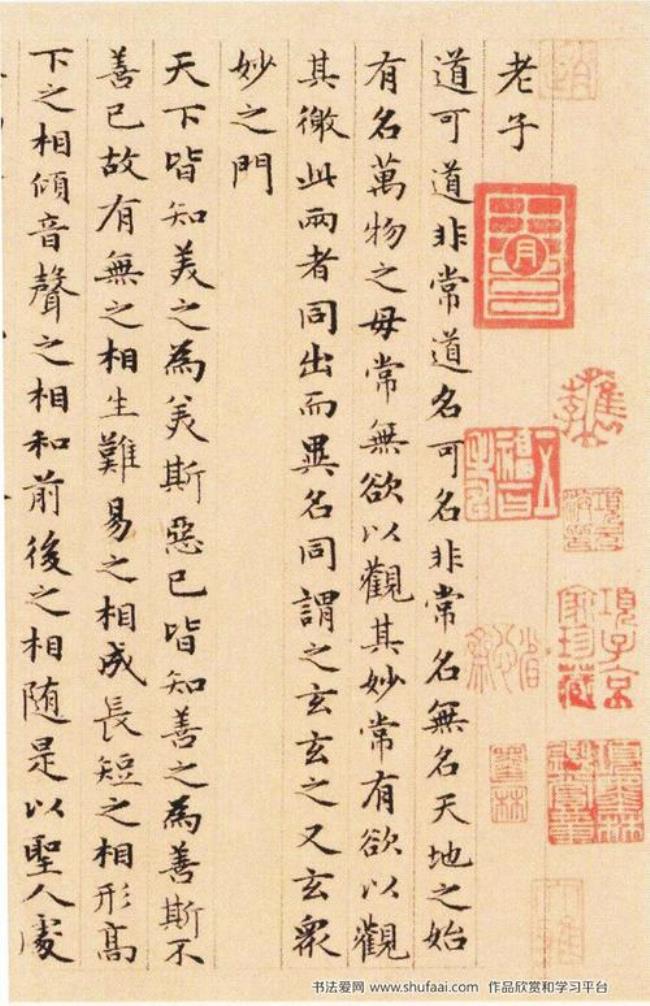 老子
道可道非常道名可名非常名無名天地之始
有名萬物之母常無欲以觀其妙常有欲以觀
其徼此兩者同出而異名同謂之玄玄之又玄眾
妙之門
天下皆知美之為美斯惡已皆知善之為善斯不
善已故有無之相生難易之相成長短之相形高
下之相傾音聲之相和前後之相随是以聖人處
項子京
家珍藏
墨林
書法爱网 www.shufaai.com 作品欣赏和学习平台